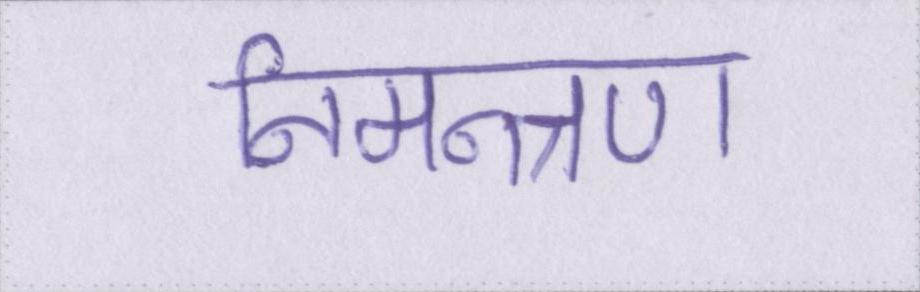 निमन्त्रण